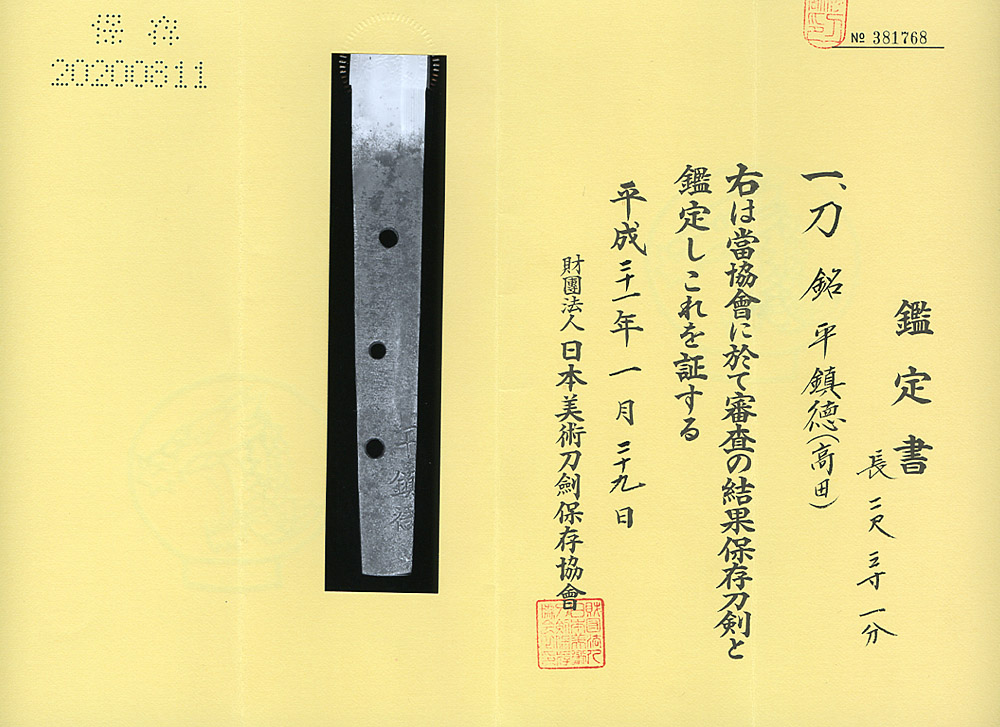 保存
20200811
№ 381768
鑑定書
一、刀 銘 平鎮徳(高田)
長 二尺三寸一分
右は當協會に於て審査の結果保存刀剣と
鑑定しこれを証する
平成三十一年一月二十九日
財團法人日本美術刀劍保存協會
平鎮